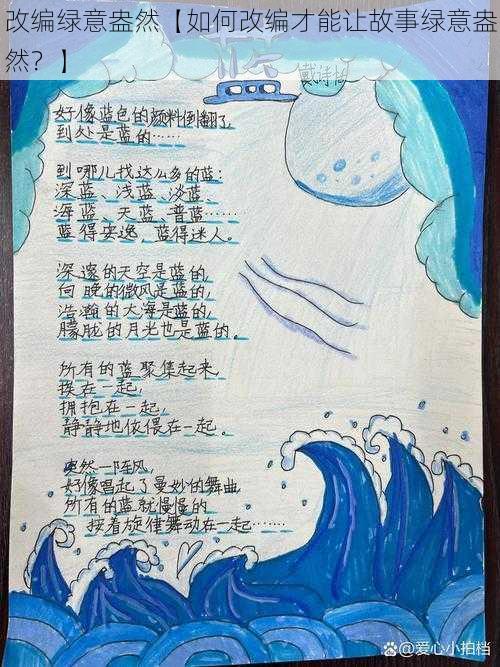 改编绿意盎然【如何改编才能让故事绿意盎
然？】
蓝
戴诗涵
好像蓝色的颜料倒翻了,
到处是蓝的……
到哪儿找这么多的蓝:
深蓝、浅蓝、淡蓝、
海蓝、天蓝、普蓝……
蓝得安逸,蓝得迷人。
深邃的天空是蓝的,
向晚的微风是蓝的,
浩瀚的大海是蓝的,
朦胧的月光也是蓝的。
所有的蓝聚集起来,
挨在一起,
拥抱在一起,
静静地依偎在一起。
突然一阵风,
好像唱起了曼妙的舞曲,
所有的蓝就慢慢的
按着旋律舞动在一起……
爱心小拍档